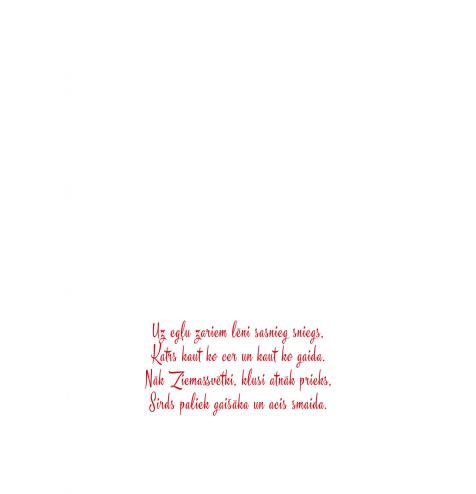 Uz egļu zariem lēni sasnieg sniegs,
Katrs kaut ko cer un kaut ko gaida.
Nāk Ziemassvētki, klusi atnāk prieks,
Sirds paliek gaišāka un acis smaida.